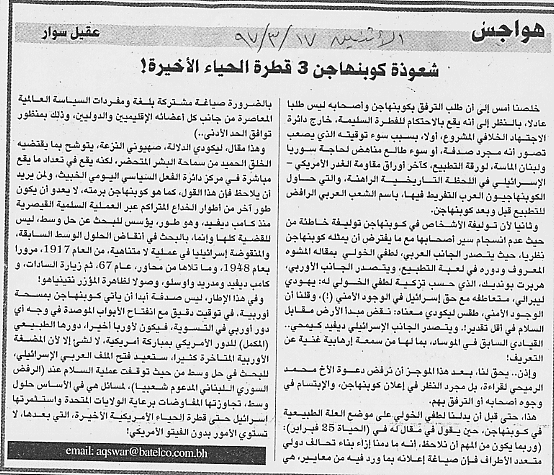 هواجس
الأثنين ٩٧/٣/١٧
عقيل سوار
شعوذة كوبنهاجن 3 قطرة الحياء الأخيرة!
خلصنا امس إلى أن طلب الترفق بكوبنهاجن وأصحابه ليس طلبا
عادلا، بالنظر إلى انه يقع بالاحتكام للفطرة السليمة، خارج دائرة
الاجتهاد الخلافي المشروع، أولا، بسبب سوء توقيته الذي يصعب
تصور انه مجرد صدفة، أو سوء طالع مناهض لحاجة سوريا
ولبنان الماسة، لورقة التطبيع، كآخر أوراق مقاومة الغدر الأمريكي –
الإسرائيلي في اللحظة التاريخية الراهنة، والتي حاول
الكوبنهاجيون العرب التفريط فيها، باسم الشعب العربي الرافض
للتطبيع قبل وبعد كوبنهاجن.
وثانيا لأن توليفة الأشخاص في كوبنهاجن توليفة خاطئة من
حيث عدم انسجام سير أصحابها مع ما يفترض أن يمثله كوبنهاجن
نظريا، حيث يتصدر الجانب العربي، لطفي الخولي بمقاله المشوه
المعروف ودوره في لعبة التطبيع، ويتصدر الجانب الأوربي،
هربرت بونديك، الذي حسب تزكية لطفي الخولي له: يهودي
ليبرالي، متعاطفه مع حق إسرائيل في الوجود الأمني (!)، وقلنا أن
الوجود الأمني، طقس ليكودي معناه: نقض مبدا الأرض مقابل
السلام في أقل تقدير!. ويتصدر الجانب الإسرائيلي ديفيد كيمحي..
القيادي السابق في الموساد، بما لها من سمعة إرهابية غنية عن
التعريف!
وإذن.. يحق لنا، بعد هذا الموجز أن نرفض دعوة الأخ محمد
الرميحي لقراءة، بل مجرد النظر في إعلان كوبنهاجن، والإبتسام في
وجوه أصحابه أو الترفق بهم.
هذا، حتي قبل أن يدلنا لطفي الخولي على موضع العلة الطبيعية
في كوبنهاجن، حين يقول في مقال له في (الحياة 25 فبراير):
(وربما يكون من المهم أن نلاحظ، أنه ما دمنا إزاء بناء تحالف دولي
متعدد الأطراف فإن صياغة إعلانه بما ورد فيه من معايير، هي
بالضرورة صياغة مشتركة بلغة ومفردات السياسة العالمية
المعاصرة من جانب كل أعضائه الإقليميين والدوليين، وذلك بمنظور
توافق الحد الأدنى..)
وهذا مقال، ليكودي الدلالة، صهيوني النزعة، يتوشح بما يقتضيه
الخلق الحميد من سماحة البشر المتحضر، لكنه يقع في تعداد ما يقع
مباشرة في مركز دائرة الفعل السياسي اليومي الخبيث، ولمن يريد
أن يلاحظ فإن هذا القول، كما هو كوبنهاجن برمته، لا يعدو أن يكون
طور آخر من أطوار الخداع المتراكم عبر العملية السلمية القيصرية
منذ كامب ديفيد، وهو طور، يؤسس للبحث عن حل وسط، ليس
للقضية كلها وإنما، بالبحث في أنقاض الحلول الوسط السابقة،
والمنقوضة إسرائيليا في عملية لا متناهية، من العام 1917، مرورا
بعام 1948، وما تلاها من محاور، عام 67، ثم زيارة السادات، و
كامب ديفيد ومدريد واوسلو، وصولا لظاهرة المؤزر نتينياهو!
وفي هذا الإطار، ليس صدفة أبدا أن يأتي كوبنهاجن بمسحة
أوربية، في توقيت دقيق مع انفتاح الأبواب الموصدة في وجه أي
دور أوربي في التسوية، فيكون لأوربا اخيرا، دورها الطبيعي
(المكمل) للدور الأمريكي بمباركة أمريكية، لا لشئ إلا لأن المضغة
الأوربية المتاخرة كثيرا، ستعيد فتح الملف العربي الإسرائيلي،
للبحث في حل وسط من حيث توقفت عملية السلام عند (الرفض
السوري اللبناني المدعوم شعبيا)، لمسائل هي في الأساس حلول
وسط، تجاوزتها المفاوضات برعاية الولايات المتحدة واستثمرتها
اسرائيل حتى قطرة الحياء الأمريكية الأخيرة، التي بعدها، لا
تستوي الأمور بدون الفيتو الأمريكي!
email: aqswar@batelco.com.bh